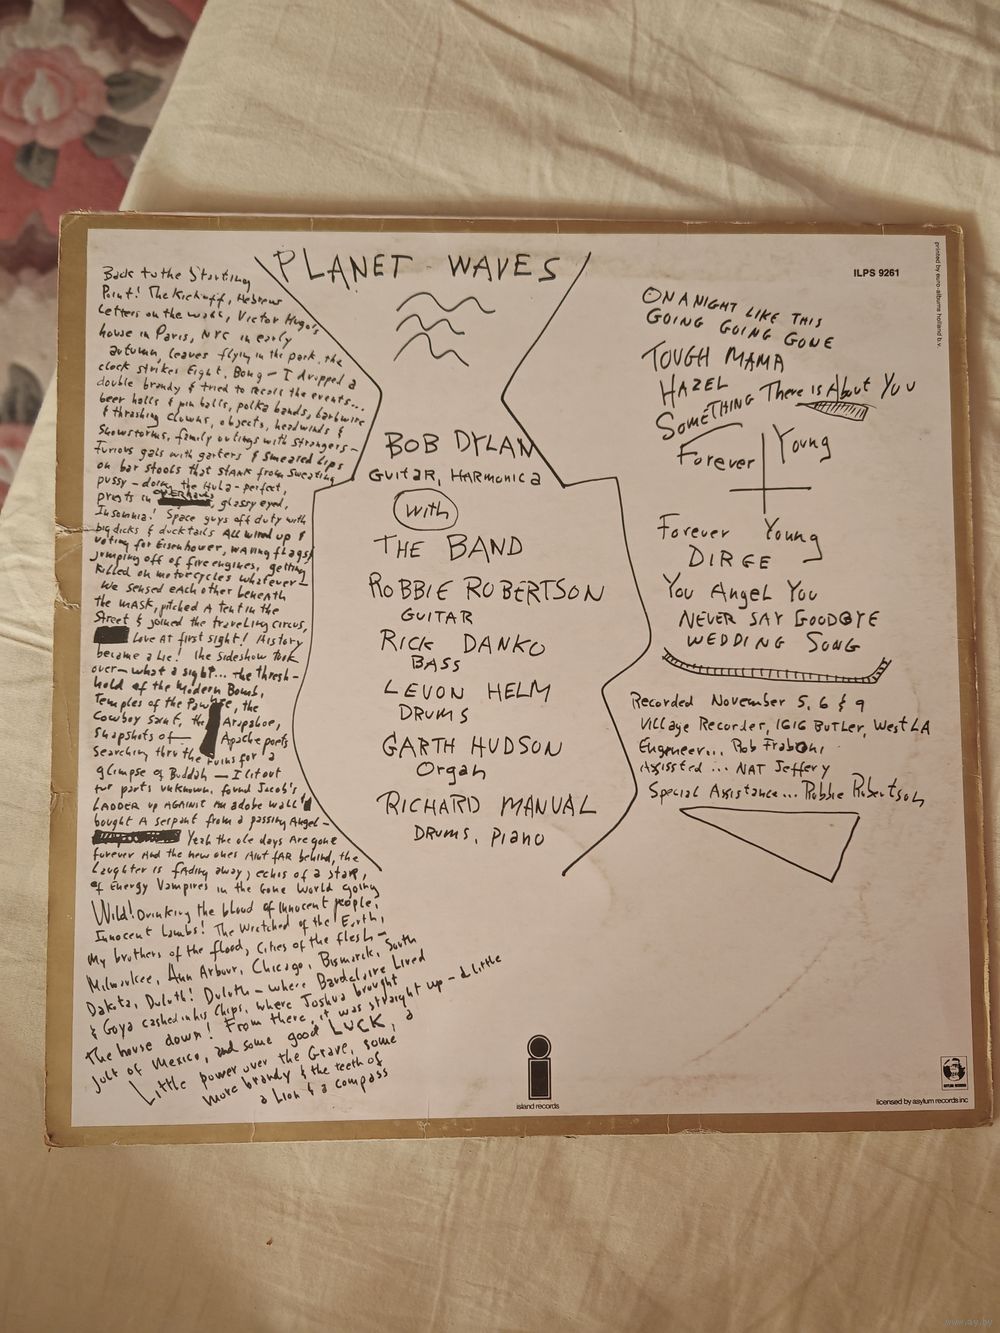 PLANET WAVES
Back to the Starting
Point! The Kickoff, Hebrew
Letters on the wall, Victor Hugo's
house in Paris, NYC in early
autumn, leaves flying in the park, the
clock strikes Eight, Bong — I dropped a
double brandy & tried to recall the events...
beer halls & pin balls, polka bands, barbwire
& thrashing clowns, objects, headwinds &
Snowstorms, family outings with strangers —
Furious gals with garters & smeared Lips
on bar stools that stank from sweating
pussy — doing the Hula — perfect,
priests in overhauls, glassy eyed,
Insomnia! Space guys off duty with
big dicks & ducktails All wired up &
voting for Eisenhower, waving flags &
jumping off of fire engines, getting
killed on motorcycles whatever —
We sensed each other beneath
the mask, pitched A tent in the
Street & joined the traveling circus,
Love At first sight! History
became a Lie! The sideshow took
over — what a sight... the thresh-
hold of the Modern Bomb,
Temples of the Pawnee, the
Cowboy Saint, the Arapahoe,
Snapshots of — Apache poets
Searching thru the ruins for a
glimpse of Buddah — I lit out
for parts unknown, found Jacob's
LADDER up AGAINST An adobe wall &
bought A serpant from a passing Angel —
Yeah the ole days Are gone
forever And the new ones Aint fAR behind, the
Laughter is fAding away, echos of a staR,
of Energy Vampires in the Gone World going
Wild! Drinking the blood of innocent people,
Innocent Lambs! The Wretched of the Earth,
My brothers of the flood, Cities of the flesh —
Milwaukee, Ann Arbour, Chicago, Bismarck, South
Dakota, Duluth! Duluth — where Baudelaire Lived
& Goya cashed in his Chips, where Joshua brought
The house down! From there, it was straight up — a little
jolt of Mexico, and some good LUCK, a
Little power over the Grave, some
more brandy & the teeth of
a Lion & a compass
BOB DYLAN
GUITAR, HARMONICA
with
THE BAND
ROBBIE ROBERTSON
GUITAR
RICK DANKO
BASS
LEVON HELM
DRUMS
GARTH HUDSON
Organ
RICHARD MANUAL
DRUMS, PIANO
island records
printed by euro-albums holland b.v.
ILPS 9261
ON A NIGHT LIKE THIS
GOING GOING GONE
TOUGH MAMA
HAZEL
SOMETHING There is About You
Forever Young
Forever Young
DIRGE
You Angel You
NEVER SAY GOODBYE
WEDDING SONG
Recorded November 5, 6 & 9
Village Recorder, 1616 Butler, West LA
Engeneer... Rob Fraboni
Assissted ... NAT Jeffery
Special Assistance... Robbie Robertson
ASYLUM RECORDS
licensed by asylum records inc
www.ay.by